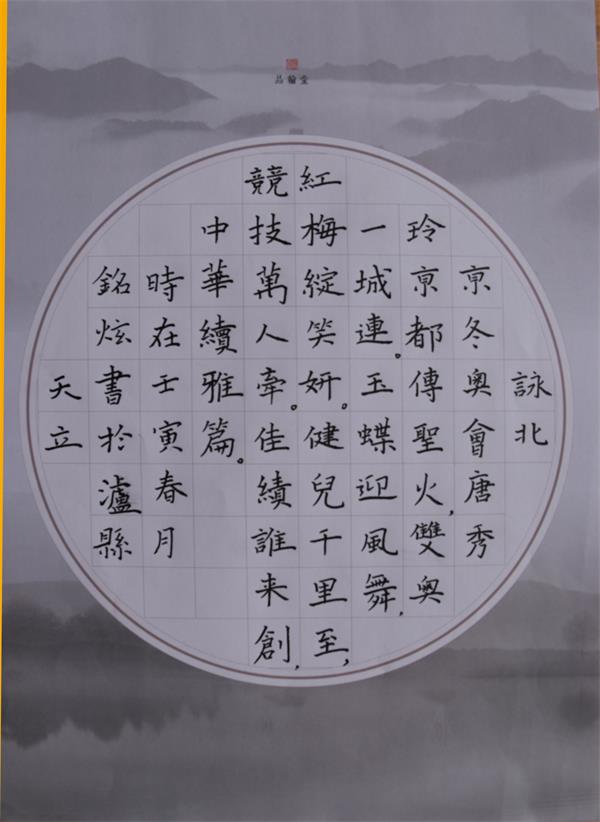 品翰堂
詠北
亰冬奧會唐秀
玲亰都傳聖火,雙奧
一城連。玉蝶迎風舞,
紅梅綻笑妍。健兒千里至,
競技萬人牽。佳績誰来創,
中華續雅篇。
時在壬寅春月
銘炫書於瀘縣
天立